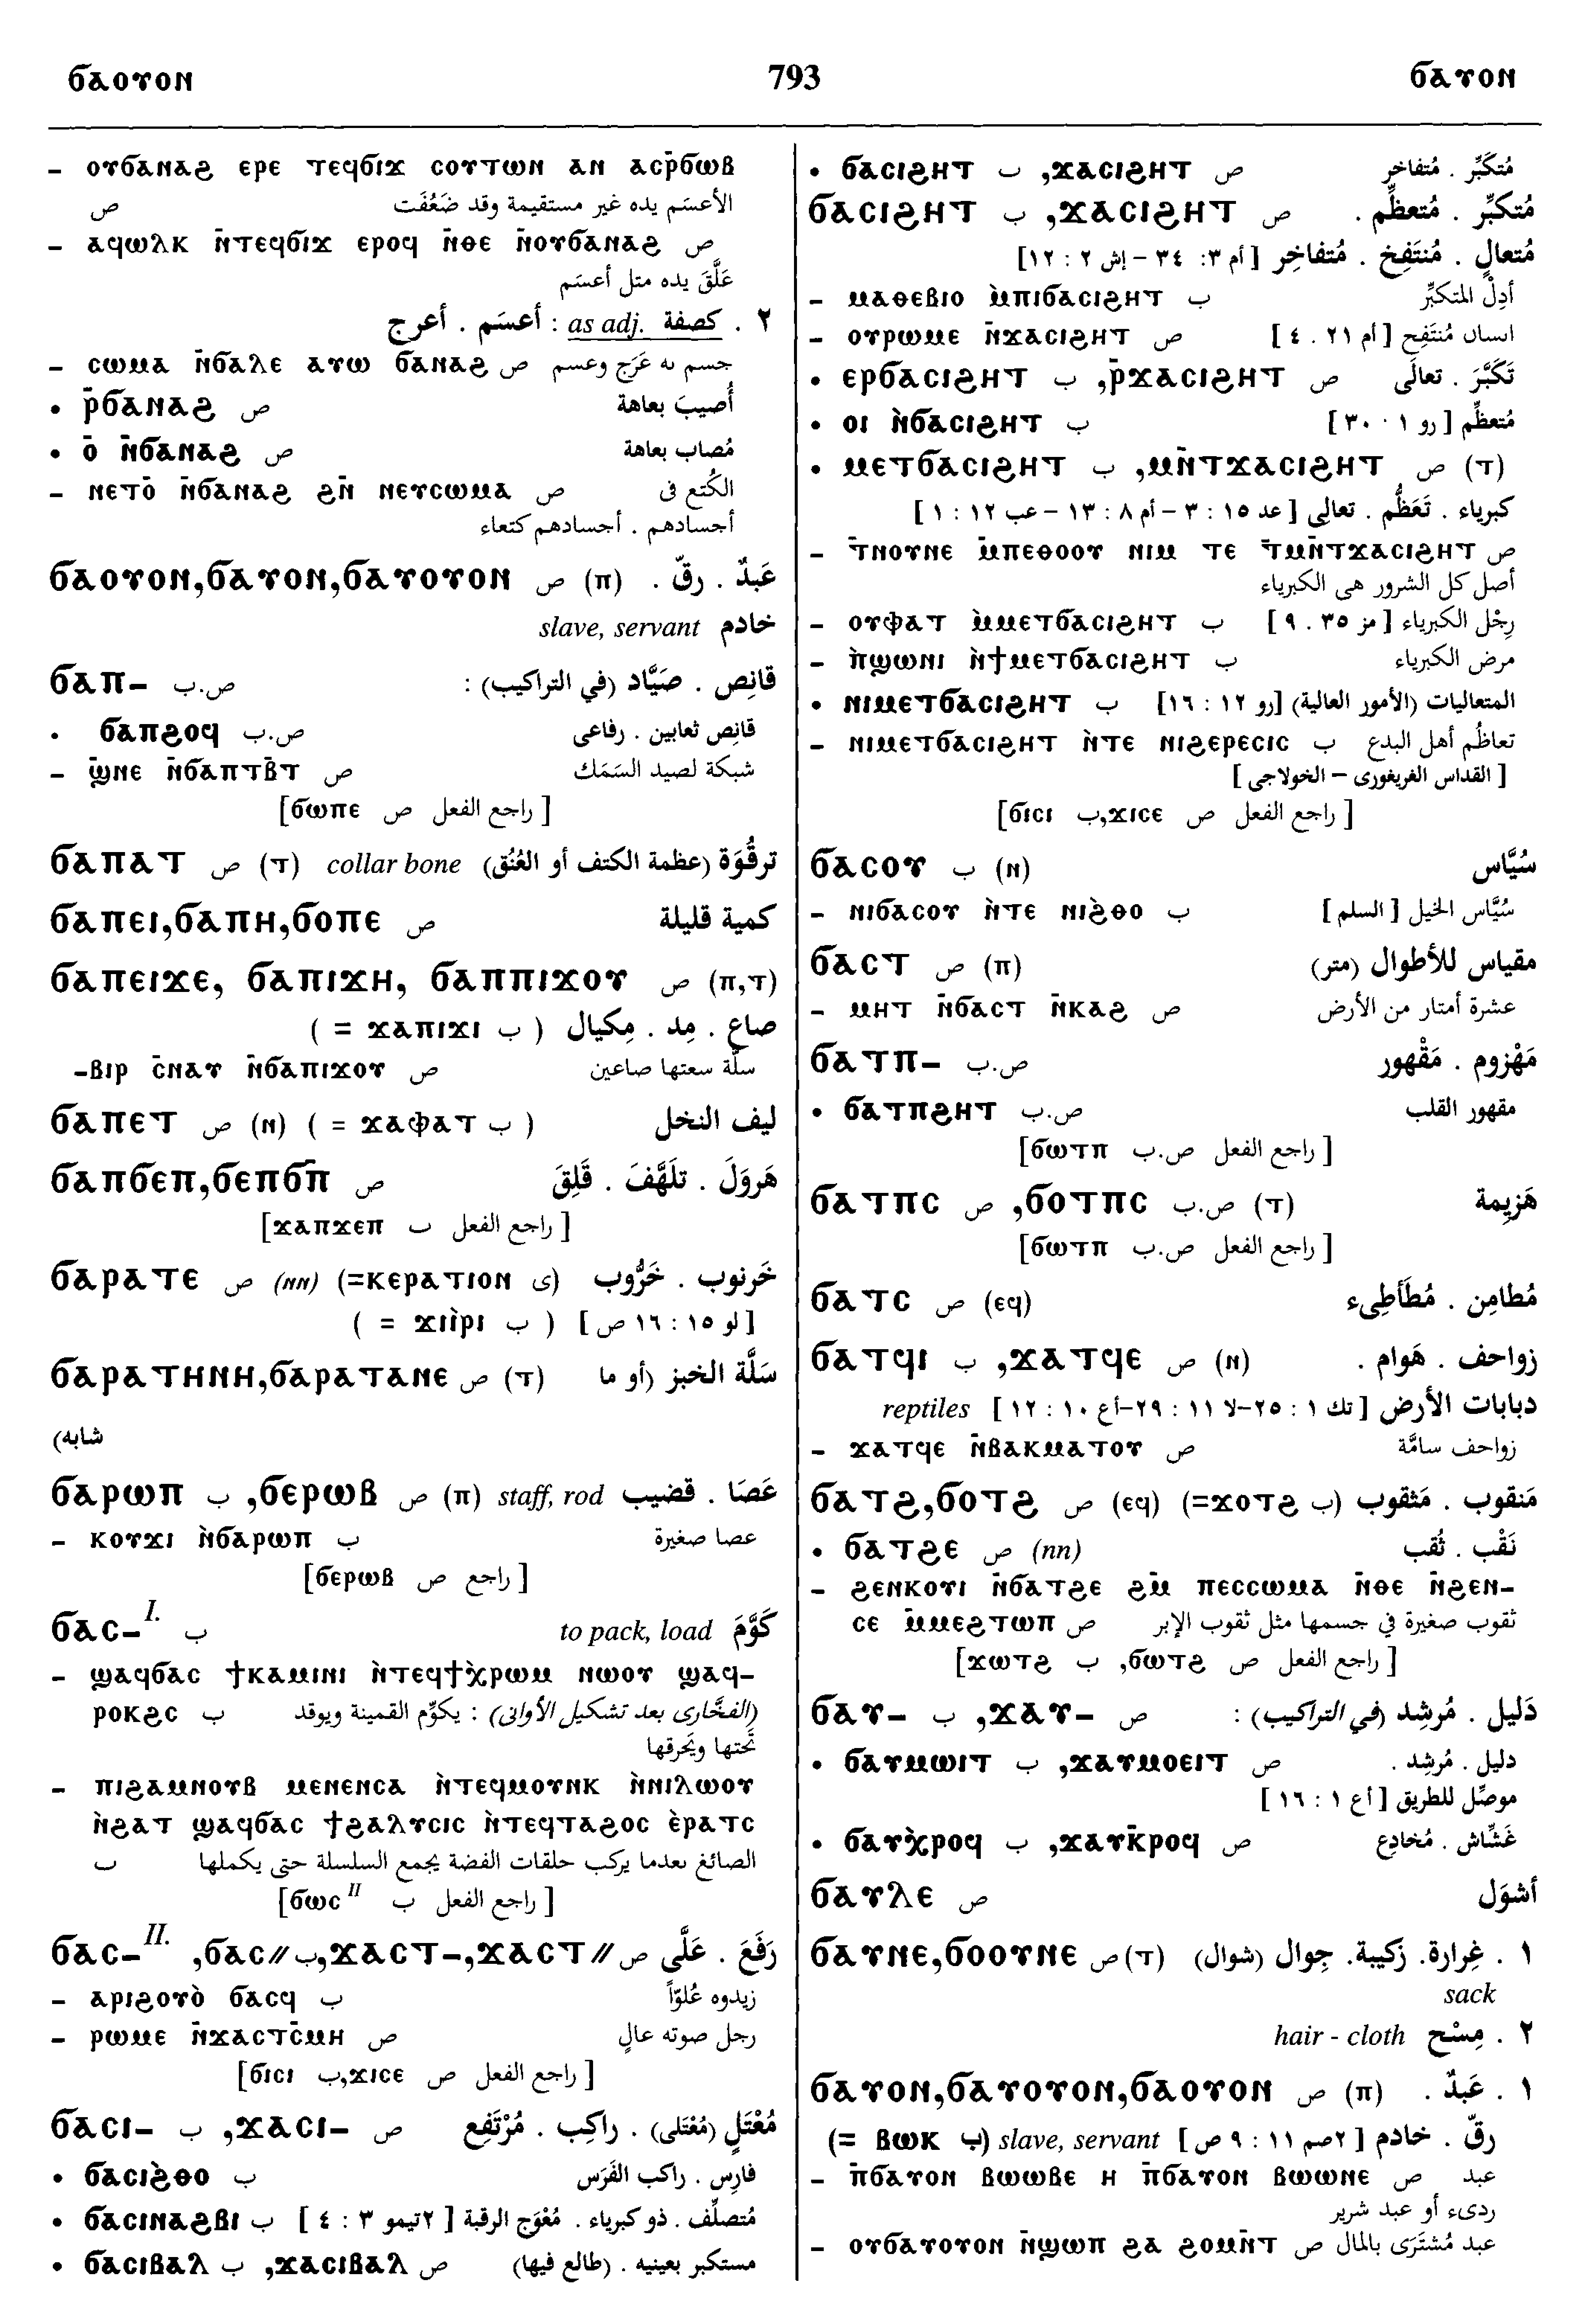 ϭⲁⲟⲩⲟⲛ 793 ϭⲁⲩⲟⲛ
– ⲟⲩϭⲁⲛⲁϩ ⲉⲣⲉ ⲧⲉϥϭⲓϫ ⲥⲟⲩⲧⲱⲛ ⲁⲛ ⲁⲥⲣ̄ϭⲱⲃ
الأعسَم يده غير مستقيمة وقد ضَعُفَت ص
– ⲁϥⲱⲗⲕ ⲛ̄ⲧⲉϥϭⲓϫ ⲉⲣⲟϥ ⲛ̄ⲑⲉ ⲛ̄ⲟⲩϭⲁⲛⲁϩ ص
عَلَّقَ يده مثل أعسَم
٢ . كصفة as adj. : أعسَم . أعرج
– ⲥⲱⲙⲁ ⲛ̄ϭⲁⲗⲉ ⲁⲩⲱ ϭⲁⲛⲁϩ ص جسم به عَرَج وعسم
• ⲣ̄ϭⲁⲛⲁϩ ص أُصيبَ بعاهة
• ⲟ̄ ⲛ̄ϭⲁⲛⲁϩ ص مُصاب بعاهة
– ⲛⲉⲧⲟ̄ ⲛ̄ϭⲁⲛⲁϩ ϩⲛ̄ ⲛⲉⲩⲥⲱⲙⲁ ص الكُتع فى
أجسادهم . أجسادهم كتعاء
ϭⲁⲟⲩⲟⲛ,ϭⲁⲩⲟⲛ,ϭⲁⲩⲟⲩⲟⲛ ص (ⲡ) عَبدٌ . رقّ .
خادم slave, servant
ϭⲁⲡ– ص.ب قانِص . صَيَّاد (في التراكيب) :
• ϭⲁⲡϩⲟϥ ص.ب قانِص ثعابين . رفاعى
– ϣ̄ⲛⲉ ⲛ̄ϭⲁⲡⲧⲃ̄ⲧ ص شبكة لصيد السَمَك
[راجع الفعل ص ϭⲱⲡⲉ]
ϭⲁⲡⲁⲧ ص (ⲧ) collar bone ترقُوَة (عظمة الكتف أو العُنُق)
ϭⲁⲡⲉⲓ,ϭⲁⲡⲏ,ϭⲟⲡⲉ ص كمية قليلة
ϭⲁⲡⲉⲓϫⲉ, ϭⲁⲡⲓϫⲏ, ϭⲁⲡⲡⲓϫⲟⲩ ص (ⲡ,ⲧ)
صاع . مِد . مِكيال ( ب ϫⲁⲡⲓϫⲓ = )
–ⲃⲓⲣ ⲥ̄ⲛⲁⲩ ⲛ̄ϭⲁⲡⲓϫⲟⲩ ص سلَّة سعتها صاعين
ϭⲁⲡⲉⲧ ص (ⲛ) ( = ϫⲁⲫⲁⲧ ب ) ليف النخل
ϭⲁⲡϭⲉⲡ,ϭⲉⲡϭⲡ̄ ص هَروَلَ . تلَهَّفَ . قَلِقَ
[راجع الفعل ب ϫⲁⲡϫⲉⲡ]
ϭⲁⲣⲁⲧⲉ ص (nn) (=ⲕⲉⲣⲁⲧⲓⲟⲛ ى) خَرنوب . خَرُّوب
[لو ١٥ : ١٦ ص] ( ب ϫⲓⲓ̀ⲣⲓ = )
ϭⲁⲣⲁⲧⲏⲛⲏ,ϭⲁⲣⲁⲧⲁⲛⲉ ص (ⲧ) سَلَّة الخبز (أو ما
شابه)
ϭⲁⲣⲱⲡ ب ,ϭⲉⲣⲱⲃ ص (ⲡ) staff, rod عَصَا . قضيب
– ⲕⲟⲩϫⲓ ⲛ̀ϭⲁⲣⲱⲡ ب عصا صغيرة
[راجع ص ϭⲉⲣⲱⲃ]
ϭⲁⲥ–I. ب كَوَّمَ to pack, load
– ϣⲁϥϭⲁⲥ ϯⲕⲁⲙⲓⲛⲓ ⲛ̀ⲧⲉϥϯⲭ̀ⲣⲱⲙ ⲛⲱⲟⲩ ϣⲁϥ–
ⲣⲟⲕϩⲥ ب (الفخَّارى بعد تشكيل الأوانى) : يكوِّم القمينة ويوقد
تحتها ويَحرقها
– ⲡⲓϩⲁⲙⲛⲟⲩⲃ ⲙⲉⲛⲉⲛⲥⲁ ⲛ̀ⲧⲉϥⲙⲟⲩⲛⲕ ⲛ̀ⲛⲓⲗⲱⲟⲩ
ⲛ̀ϩⲁⲧ ϣⲁϥϭⲁⲥ ϯϩⲁⲗⲩⲥⲓⲥ ⲛ̀ⲧⲉϥⲧⲁϩⲟⲥ ⲉ̀ⲣⲁⲧⲥ
الصائغ بعدما يركب حلقات الفضة يجمع السلسلة حتى يكملها ب
[راجع الفعل ب ϭⲱⲥ II]
ϭⲁⲥ–II. ,ϭⲁⲥ// ب,ϫⲁⲥⲧ–,ϫⲁⲥⲧ// ص رَفَعَ . عَلَّى
– ⲁⲣⲓϩⲟⲩⲟ̀ ϭⲁⲥϥ ب زيدوه عُلوّاً
– ⲣⲱⲙⲉ ⲛ̄ϫⲁⲥⲧⲥ̄ⲙⲏ ص رجل صوته عالٍ
[راجع الفعل ص ϫⲓⲥⲉ,ب ϭⲓⲥⲓ]
ϭⲁⲥⲓ– ب ,ϫⲁⲥⲓ– ص مُعْتَلٍ (مُعْتَلى) . راكِب . مُرْتَفِع
• ϭⲁⲥⲓϩ̀ⲑⲟ ب فارِس . راكب الفَرَس
• ϭⲁⲥⲓⲛⲁϩⲃⲓ ب مُتصلِّف . ذو كبرياء . مُعْوَج الرقبة [٢تيمو ٣ : ٤]
• ϭⲁⲥⲓⲃⲁⲗ ب ,ϫⲁⲥⲓⲃⲁⲗ ص مستكبر بعينيه . (طالع فيها)
• ϭⲁⲥⲓϩⲏⲧ ب ,ϫⲁⲥⲓϩⲏⲧ ص مُتكَبِّر . مُتفاخِر
ϭⲁⲥⲓϩⲏⲧ ب ,ϫⲁⲥⲓϩⲏⲧ ص مُتكبِّر . مُتعظِّم .
مُتعالٍ . مُنتَفِخ . مُتفاخِر [أم ٣: ٣٤ – إش ٢ : ١٢]
– ⲙⲁⲑⲉⲃⲓⲟ ⲙ̀ⲡⲓϭⲁⲥⲓϩⲏⲧ ب أذِلْ المتكبِّر
– ⲟⲩⲣⲱⲙⲉ ⲛ̄ϫⲁⲥⲓϩⲏⲧ ص انسان مُنتَفِخ [أم ٢١ . ٤]
• ⲉⲣϭⲁⲥⲓϩⲏⲧ ب ,ⲣ̄ϫⲁⲥⲓϩⲏⲧ ص تَكَبَّرَ . تعالَى
• ⲟⲓ ⲛ̀ϭⲁⲥⲓϩⲏⲧ ب مُتعظِّم [رو ١ . ٣٠]
• ⲙⲉⲧϭⲁⲥⲓϩⲏⲧ ب ,ⲙⲛ̄ⲧϫⲁⲥⲓϩⲏⲧ ص (ⲧ)
كبرياء . تَعَظُّم . تعالِي [عد ١٥ : ٣ – أم ٨ : ١٣ – عب ١٢ : ١]
– ⲧ̄ⲛⲟⲩⲛⲉ ⲙ̄ⲡⲉⲑⲟⲟⲩ ⲛⲓⲙ ⲧⲉ ⲧ̄ⲙⲛ̄ⲧϫⲁⲥⲓϩⲏⲧ ص
أصل كل الشرور هى الكبرياء
– ⲟⲩⲫⲁⲧ ⲙ̀ⲙⲉⲧϭⲁⲥⲓϩⲏⲧ ب رِجْل الكبرياء [مز ٣٥ . ٩]
– ⲡ̀ϣⲱⲛⲓ ⲛ̀ϯⲙⲉⲧϭⲁⲥⲓϩⲏⲧ ب مرض الكبرياء
• ⲛⲓⲙⲉⲧϭⲁⲥⲓϩⲏⲧ ب المتعاليات (الأمور العالية) [رو ١٢ : ١٦]
– ⲛⲓⲙⲉⲧϭⲁⲥⲓϩⲏⲧ ⲛ̀ⲧⲉ ⲛⲓϩⲉⲣⲉⲥⲓⲥ ب تعاظُم أهل البدع
[القداس الغريغورى – الخولاجى]
[راجع الفعل ص ϫⲓⲥⲉ,ب ϭⲓⲥⲓ]
ϭⲁⲥⲟⲩ ب (ⲛ) سُيَّاس
– ⲛⲓϭⲁⲥⲟⲩ ⲛ̀ⲧⲉ ⲛⲓϩ̀ⲑⲟ ب سُيَّاس الخيل [السلم]
ϭⲁⲥⲧ ص (ⲡ) مقياس للأطوال (متر)
– ⲙⲏⲧ ⲛ̄ϭⲁⲥⲧ ⲛ̄ⲕⲁϩ ص عشرة أمتار من الأرض
ϭⲁⲧⲡ– ص.ب مَهْزوم . مَقْهور
• ϭⲁⲧⲡϩⲏⲧ ص.ب مقهور القلب
[راجع الفعل ص.ب ϭⲱⲧⲡ]
ϭⲁⲧⲡⲥ ص ,ϭⲟⲧⲡⲥ ص.ب (ⲧ) هَزيمة
[راجع الفعل ص.ب ϭⲱⲧⲡ]
ϭⲁⲧⲥ ص (ⲉϥ) مُطامِن . مُطَأطِىء
ϭⲁⲧϥⲓ ب ,ϫⲁⲧϥⲉ ص (ⲛ) زواحف . هَوام .
دبابات الأرض [تك ١ : ٢٥–لا ١١ : ٢٩–أع ١٠ : ١٢] reptiles
– ϫⲁⲧϥⲉ ⲛ̄ⲃⲁⲕⲙⲁⲧⲟⲩ ص زواحف سامَّة
ϭⲁⲧϩ,ϭⲟⲧϩ ص (ⲉϥ) (=ϫⲟⲧϩ ب) مَنقوب . مَثقوب
• ϭⲁⲧϩⲉ ص (nn) نَقْب . ثُقب
– ϩⲉⲛⲕⲟⲩⲓ ⲛ̄ϭⲁⲧϩⲉ ϩⲙ̄ ⲡⲉⲥⲥⲱⲙⲁ ⲛ̄ⲑⲉ ⲛ̄ϩⲉⲛ–
ⲥⲉ ⲙ̄ⲙⲉϩⲧⲱⲡ ص ثقوب صغيرة في جسمها مثل ثقوب الإبر
[راجع الفعل ص ϭⲱⲧϩ, ب ϫⲱⲧϩ]
ϭⲁⲩ– ب ,ϫⲁⲩ– ص دَليل . مُرشِد (في التراكيب) :
• ϭⲁⲩⲙⲱⲓⲧ ب ,ϫⲁⲩⲙⲟⲉⲓⲧ ص دليل . مُرشِد .
موصِّل للطريق [أع ١ : ١٦]
• ϭⲁⲩⲭ̀ⲣⲟϥ ب ,ϫⲁⲩⲕ̄ⲣⲟϥ ص غَشَّاش . مُخادِع
ϭⲁⲩⲗⲉ ص أشوَل
ϭⲁⲩⲛⲉ,ϭⲟⲟⲩⲛⲉ ص (ⲧ) ١ . غِرارة. زكيبة. جِوال (شوال)
sack
٢ . مِسْح hair - cloth
ϭⲁⲩⲟⲛ,ϭⲁⲩⲟⲩⲟⲛ,ϭⲁⲟⲩⲟⲛ ص (ⲡ) ١ . عَبدٌ .
رقّ . خادم [٢صم ١١ : ٩ ص] slave, servant (ب ⲃⲱⲕ =)
– ⲡ̄ϭⲁⲩⲟⲛ ⲃⲱⲱⲃⲉ ⲏ ⲡ̄ϭⲁⲩⲟⲛ ⲃⲱⲱⲛⲉ ص عبد
ردىء أو عبد شرير
– ⲟⲩϭⲁⲩⲟⲩⲟⲛ ⲛ̄ϣⲱⲡ ϩⲁ ϩⲟⲙⲛ̄ⲧ ص عبد مُشتَرَى بالمال